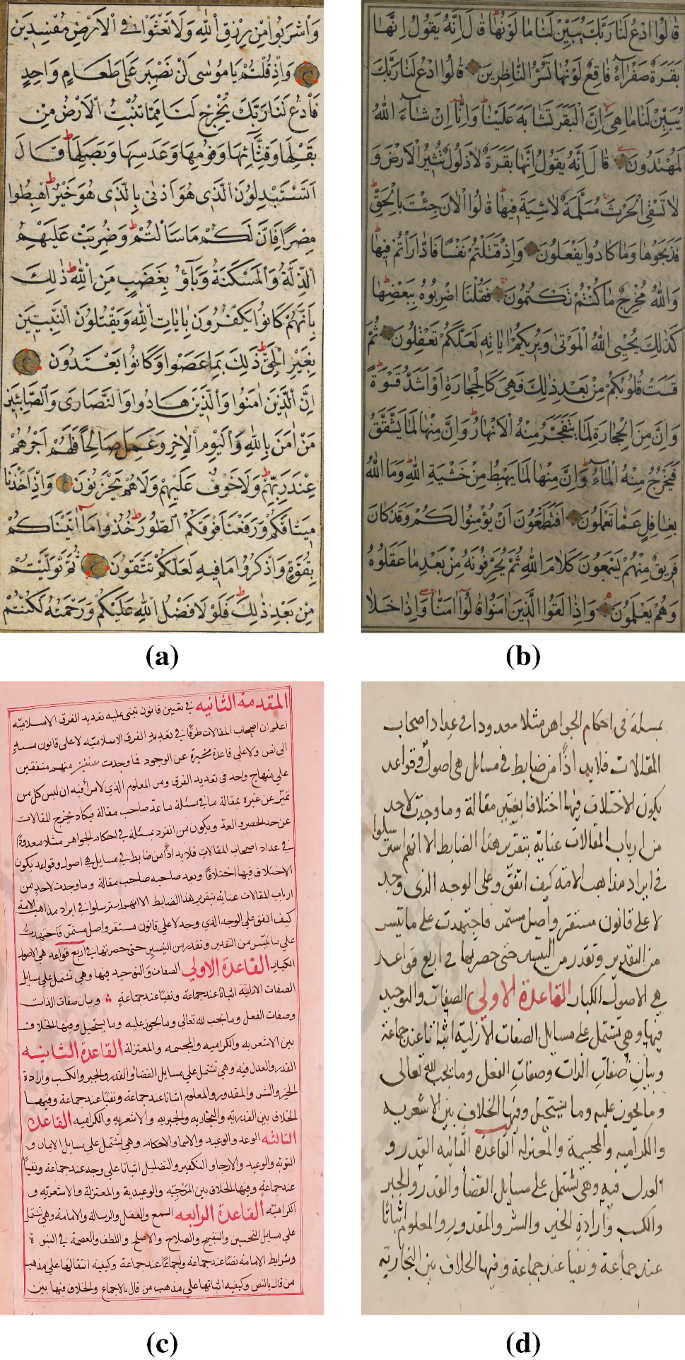 واشربوا من رزق الله ولا تعثوا في الارض مفسدين
واذ قلتم يا موسى لن نصبر على طعام واحد
فادع لنا ربك يخرج لنا مما تنبت الارض من
بقلها وقثائها وفومها وعدسها وبصلها قال
اتستبدلون الذي هو ادنى بالذي هو خير اهبطوا
مصرا فان لكم ما سالتم وضربت عليهم
الذلة والمسكنة وباؤ بغضب من الله ذلك
بانهم كانوا يكفرون بايات الله ويقتلون النبيين
بغير الحق ذلك بما عصوا وكانوا يعتدون
ان الذين امنوا والذين هادوا والنصارى والصابئين
من امن بالله واليوم الاخر وعمل صالحا فلهم اجرهم
عند ربهم ولا خوف عليهم ولا هم يحزنون واذ اخذنا
ميثاقكم ورفعنا فوقكم الطور خذوا ما اتيناكم
بقوة واذكروا ما فيه لعلكم تتقون ثم توليتم
من بعد ذلك فلولا فضل الله عليكم ورحمته لكنتم
(a)
قالوا ادع لنا ربك يبين لنا ما لونها قال انه يقول انها
بقرة صفراء فاقع لونها تسر الناظرين قالوا ادع لنا ربك
يبين لنا ما هي ان البقر تشابه علينا وانا ان شاء الله
لمهتدون قال انه يقول انها بقرة لا ذلول تثير الارض و
لا تسقي الحرث مسلمة لا شية فيها قالوا الان جئت بالحق
فذبحوها وما كادوا يفعلون واذ قتلتم نفسا فادارأتم فيها
والله مخرج ما كنتم تكتمون فقلنا اضربوه ببعضها
كذلك يحيي الله الموتى ويريكم اياته لعلكم تعقلون ثم
قست قلوبكم من بعد ذلك فهي كالحجارة او اشد قسوة
وان من الحجارة لما يتفجر منه الانهار وان منها لما يشقق
فيخرج منه الماء وان منها لما يهبط من خشية الله وما الله
بغافل عما تعملون افتطمعون ان يؤمنوا لكم وقد كان
فريق منهم يسمعون كلام الله ثم يحرفونه من بعد ما عقلوه
وهم يعلمون واذا لقوا الذين امنوا قالوا امنا واذا خلا
(b)
المقدمة الثانيه في تعيين قانون تبنى عليه تعديد الفرق الاسلاميه
اعلم ان اصحاب المقالات طرقا في تعديد الفرق الاسلاميه لا على قانون مستند
الى نص ولا على قاعدة مخبرة عن الوجود فما وجدت منهم متفقين
على منهاج واحد في تعديد الفرق ومن المعلوم الذي لا مرا فيه ان ليس كل من
تميز عن غيره بمقالة ما في مسئلة ما عد صاحب مقالة فيكاد يخرج المقالات
عن حد الحصر والعد ويكون من انفرد بمسئلة في احكام الجواهر مثلا معدودا
في عداد اصحاب المقالات فلا بد اذا من ضابط في مسايل هي اصول وقواعد يكون
الاختلاف فيها اختلافا ويعد صاحبه صاحب مقالة وما وجدت لاحد من
ارباب المقالات عناية بتقرير هذا الضابط الا انهم استرسلوا في ايراد مذاهب الامة
كيف اتفق على الوجه الذي وجد لا على قانون مستقر واصل مستمر فاجتهدت
على ما تيسر من التقدير وتقدر من التيسير حتى حصرتها في اربع قواعد هي الاصول
الكبار القاعدة الاولى الصفات والتوحيد فيها وهي تشتمل على مسايل
الصفات الازلية اثباتا عند جماعة ونفيا عند جماعة وبيان صفات الذات
وصفات الفعل وما يجب لله تعالى وما يجوز عليه وما يستحيل وفيها الخلاف
بين الاشعريه والكراميه والمجسمه والمعتزلة القاعدة الثانيه
القدر والعدل فيه وهي تشتمل على مسايل القضا والقدر والجبر والكسب وارادة
الخير والشر والمقدور والمعلوم اثباتا عند جماعة ونفيا عند جماعة وفيها
الخلاف بين القدريه والنجاريه والجبريه والاشعريه والكراميه القاعدة
الثالثه الوعد والوعيد والاسما والاحكام وهي تشتمل على مسايل الايمان و
التوبه والوعيد والارجا والتكفير والتضليل اثباتا على وجه عند جماعة ونفيا
عند جماعة وفيها الخلاف بين المرجئه والوعيدية والمعتزلة والاشعرية و
الكراميه القاعدة الرابعه السمع والعقل والرسالة والامامة وهي تشتمل
على مسايل التحسين والتقبيح والصلاح والاصلح واللطف والعصمة في النبوة
وشرايط الامامة نصا عند جماعة واجماعا عند جماعة وكيفية انتقالها على مذهب
من قال بالنص وكيفية اثباتها على مذهب من قال بالاجماع والخلاف فيها بين
(c)
مسئلة في احكام الجواهر مثلا معدودا في عداد اصحاب
المقالات فلا بد اذا من ضابط في مسايل هي اصول وقواعد
يكون الاختلاف فيها اختلافا يعتبر مقالة وما وجدت لاحد
من ارباب المقالات عناية بتقرير هذا الضابط الا انهم استرسلوا
في ايراد مذاهب الامة كيف اتفق وعلى الوجه الذي وجد
لا على قانون مستقر واصل مستمر فاجتهدت على ما تيسر
من التقدير وتقدر من التيسير حتى حصرتها في اربع قواعد
هي الاصول الكبار القاعدة الاولى الصفات والتوحيد
فيها وهي تشتمل على مسايل الصفات الازلية اثباتا عند جماعة
وبيان صفات الذات وصفات الفعل وما يجب لله تعالى
وما يجوز عليه وما يستحيل وفيها الخلاف بين الاشعريه
والكراميه والمجسمة والمعتزله القاعدة الثانيه القدر و
العدل فيه وهي تشتمل على مسايل القضا والقدر والجبر
والكسب وارادة الخير والشر والمقدور والمعلوم اثباتا
عند جماعة ونفيا عند جماعة وفيها الخلاف بين النجارية
(d)